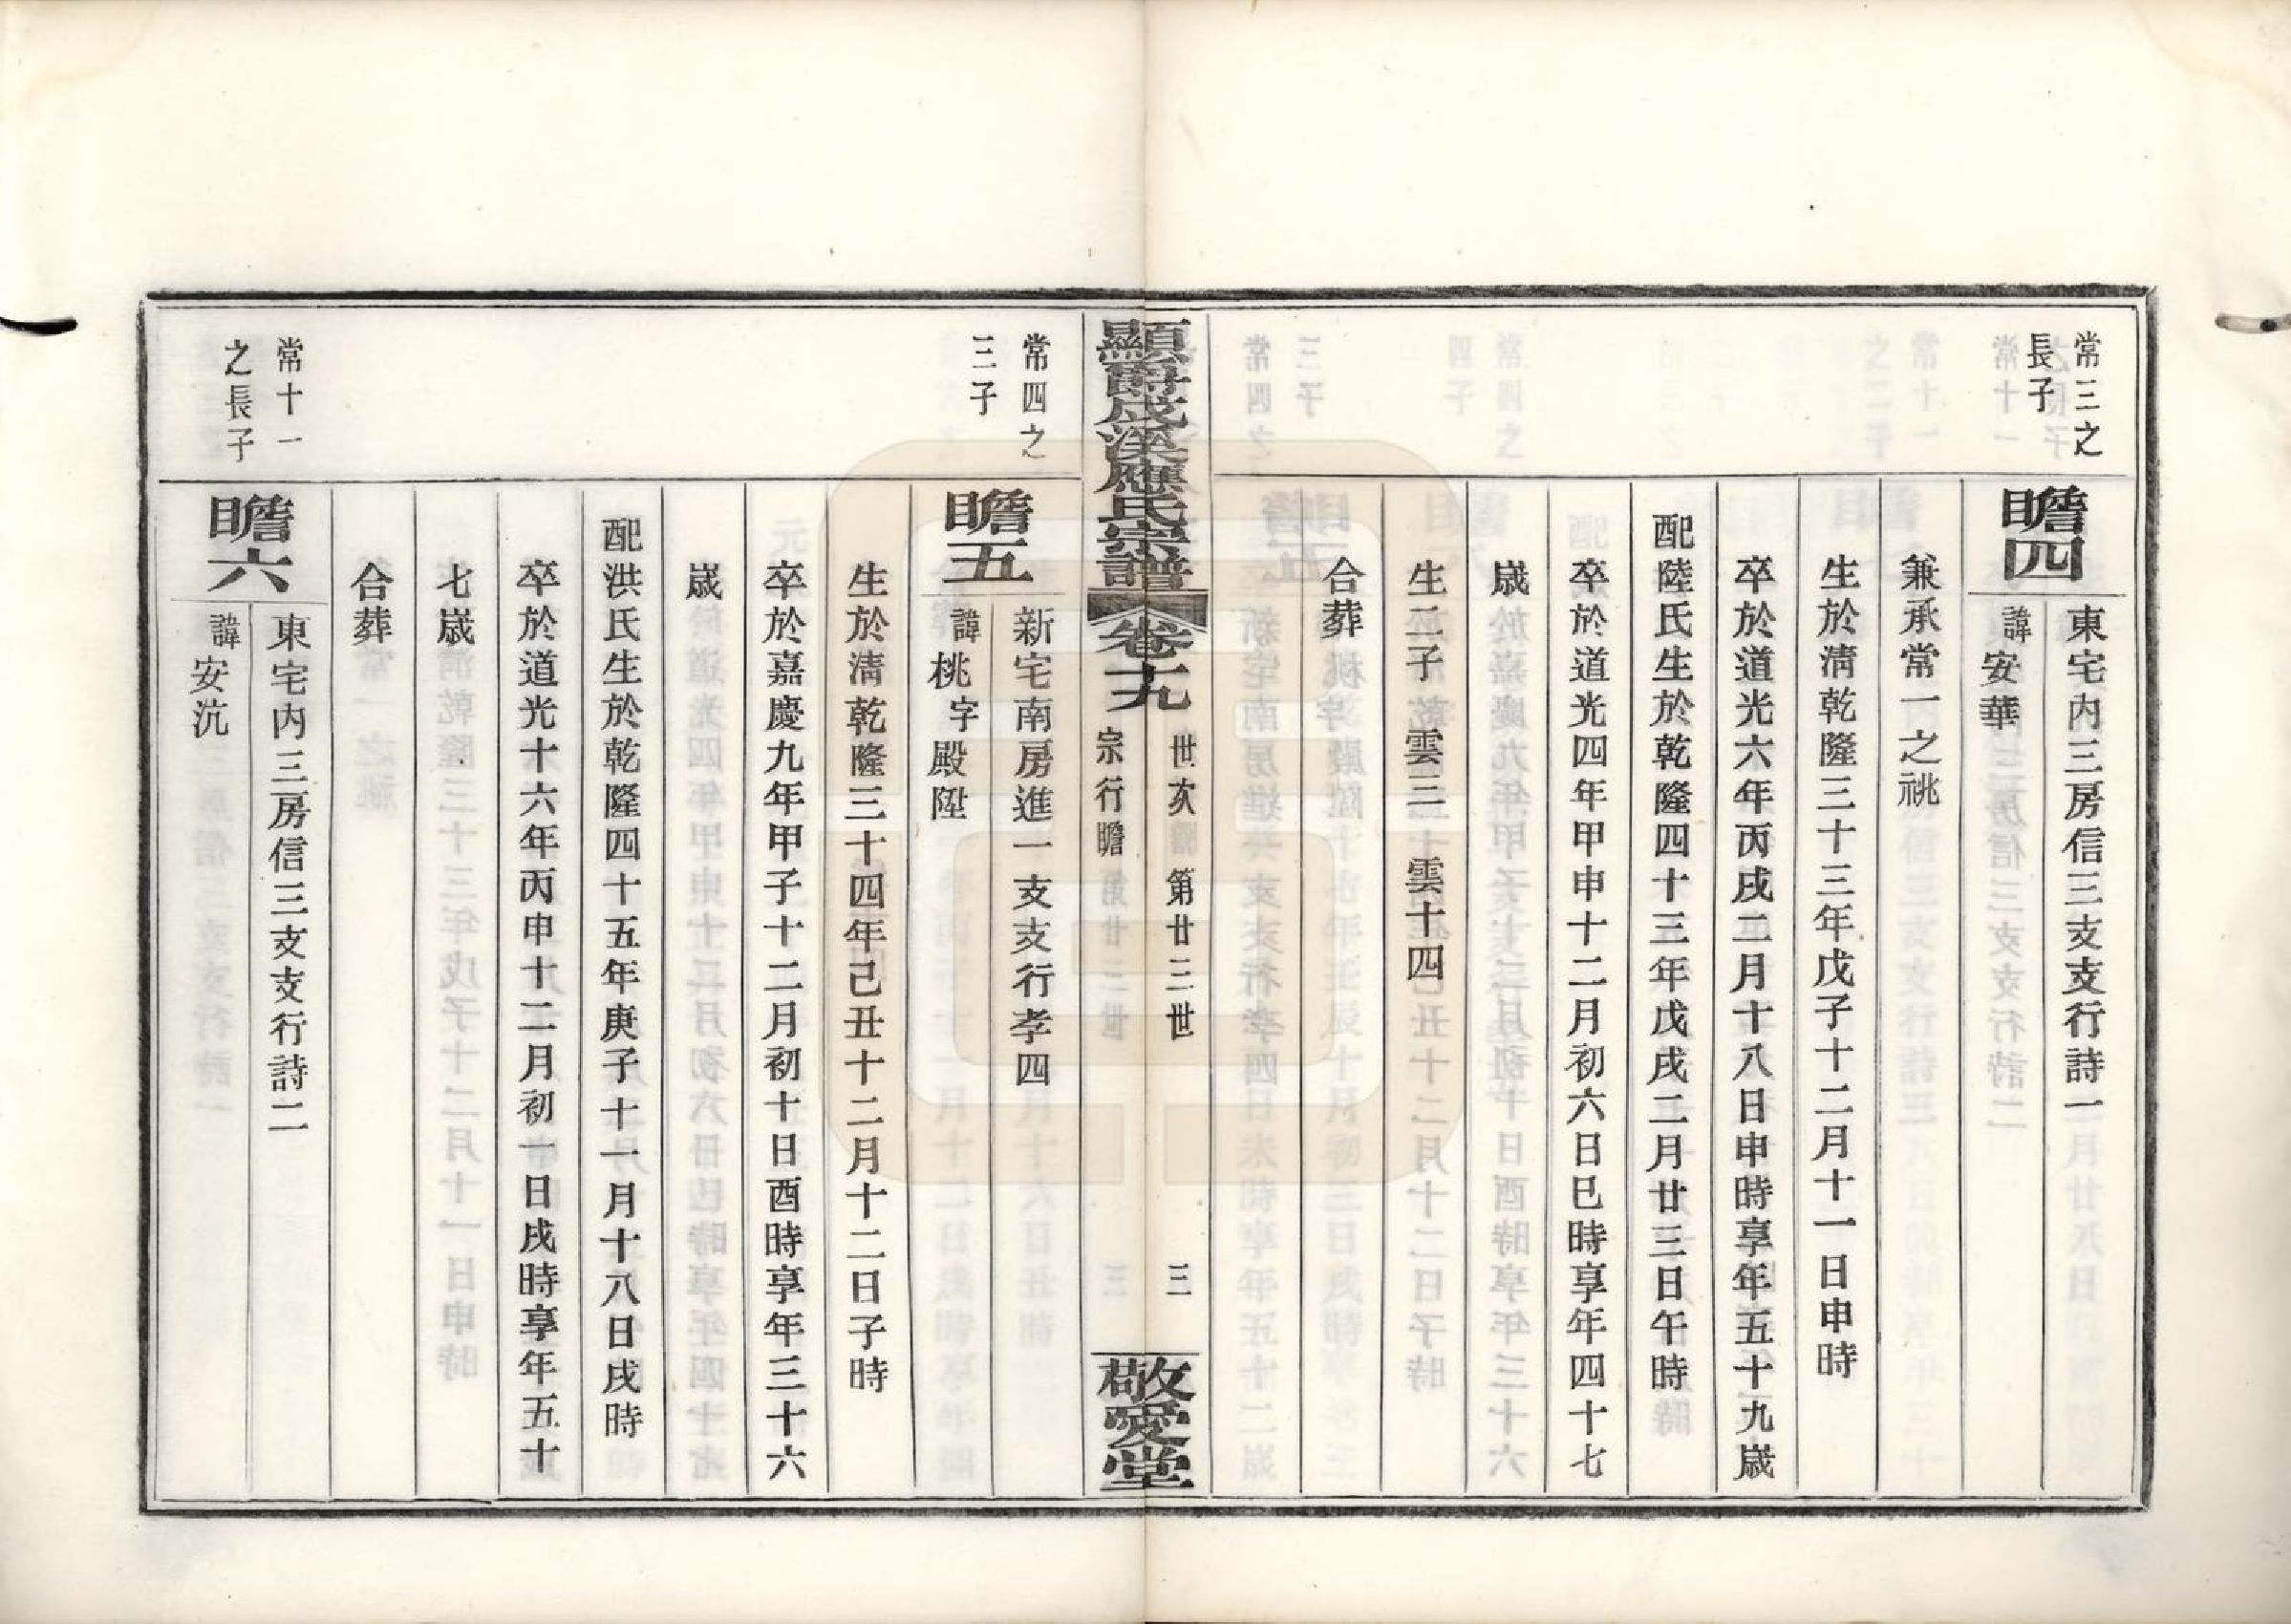 常三之
長子
瞻四
東宅内三房信三支支行詩一
諱安華
兼承常一之祧
生於淸乾隆三十三年戊子十二月十一日申時
卒於道光六年丙戌二月十八日申時享年五十九歲
配陸氏生於乾隆四十三年戊戌二月廿三日午時
卒於道光四年甲申十二月初六日巳時享年四十七
歲
生二子雲三　雲十四
合葬
顯爵成溪應氏宗譜
卷十九
世次　第廿三世
宗行瞻
三
敬愛堂
常四之
三子
瞻五
新宅南房進一支支行孝四
諱桃字殿陞
生於淸乾隆三十四年己丑十二月十二日子時
卒於嘉慶九年甲子十二月初十日酉時享年三十六
歲
配洪氏生於乾隆四十五年庚子十一月十八日戌時
卒於道光十六年丙申十二月初一日戌時享年五十
七歲
合葬
常十一
之長子
瞻六
東宅内三房信三支支行詩二
諱安沆